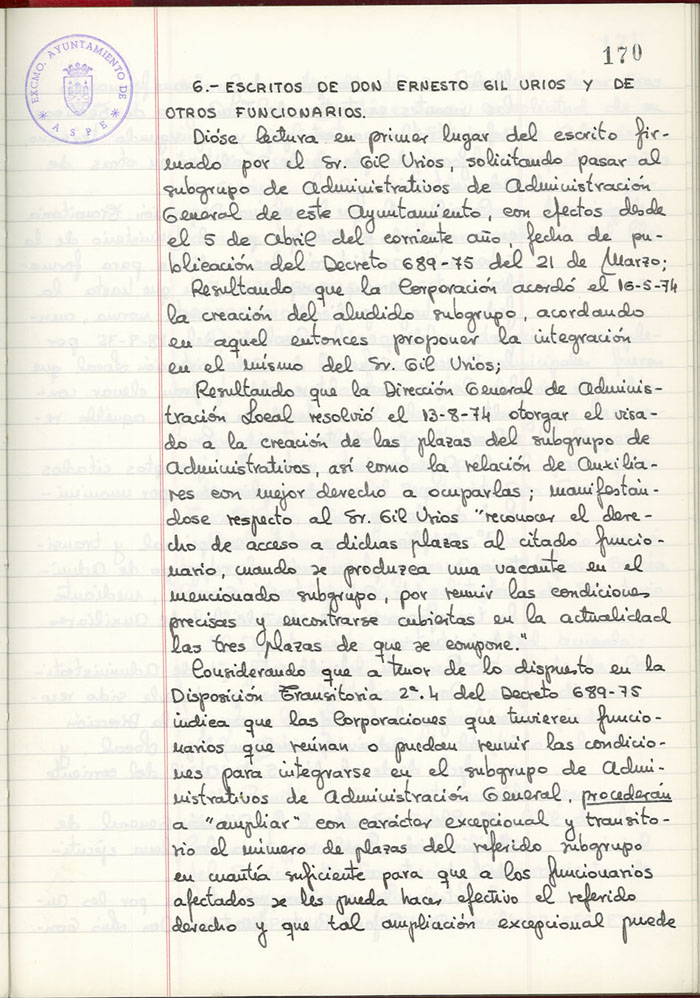 EXCMO. AYUNTAMIENTO DE
* ASPE *
170
6.- ESCRITOS DE DON ERNESTO GIL URIOS Y DE
OTROS FUNCIONARIOS.
Dióse lectura en primer lugar del escrito fir-
mado por el Sr. Gil Urios, solicitando pasar al
subgrupo de Administrativos de Administración
General de este Ayuntamiento, con efectos desde
el 5 de Abril del corriente año, fecha de pu-
blicación del Decreto 689-75 del 21 de Marzo;
Resultando que la Corporación acordó el 16-5-74
la creación del aludido subgrupo, acordando
en aquel entonces proponer la integración
en el mismo del Sr. Gil Urios;
Resultando que la Dirección General de Adminis-
tración Local resolvió el 13-8-74 otorgar el visa-
do a la creación de las plazas del subgrupo de
Administrativos, así como la relación de Auxilia-
res con mejor derecho a ocuparlas; manifestán-
dose respecto al Sr. Gil Urios "reconocer el dere-
cho de acceso a dichas plazas al citado funcio-
nario, cuando se produzca una vacante en el
mencionado subgrupo, por reunir las condiciones
precisas y encontrarse cubiertas en la actualidad
las tres plazas de que se compone."
Considerando que a tenor de lo dispuesto en la
Disposición Transitoria 2ª.4 del Decreto 689-75
indica que las Corporaciones que tuvieren funcio-
narios que reúnan o puedan reunir las condicio-
nes para integrarse en el subgrupo de Admi-
nistrativos de Administración General, procederán
a "ampliar" con carácter excepcional y transito-
rio el número de plazas del referido subgrupo
en cuantía suficiente para que a los funcionarios
afectados se les pueda hacer efectivo el referido
derecho y que tal ampliación excepcional puede